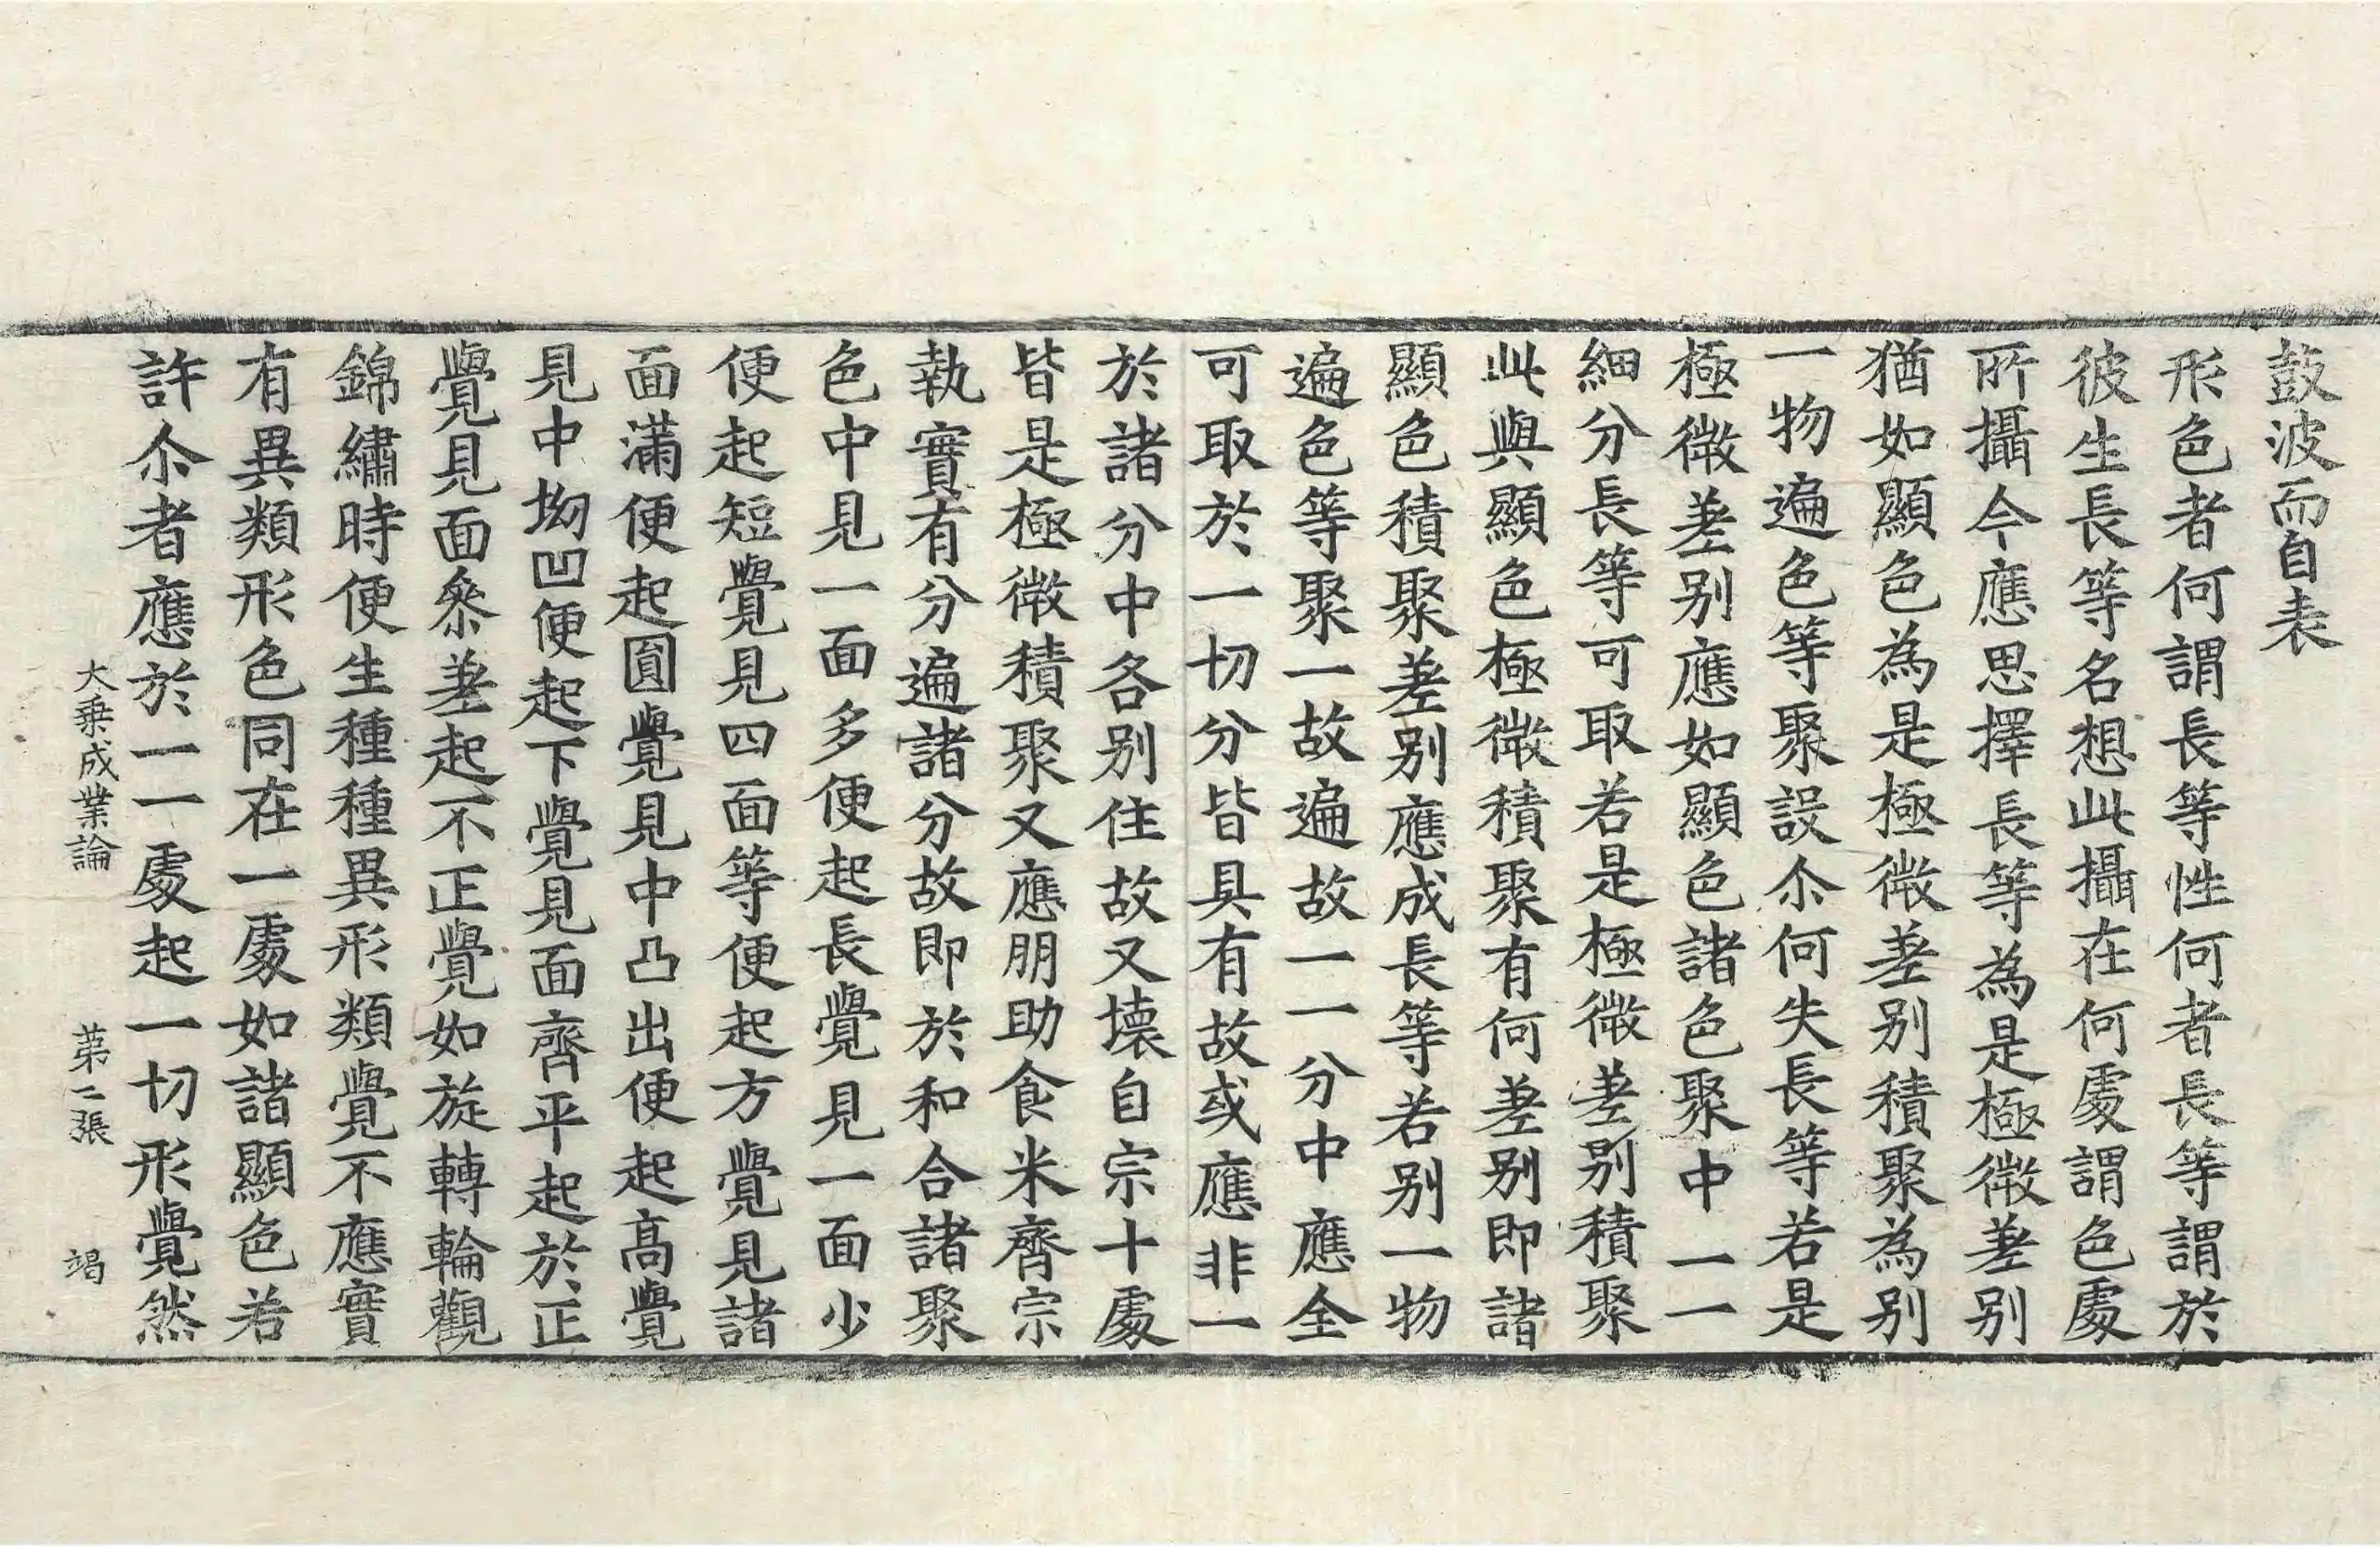 鼓波而自表
形色者何謂長等性何者長等謂於
彼生長等名想此攝在何處謂色處
所攝今應思擇長等為是極微差别
猶如顯色為是極微差别積聚為别
一物遍色等聚設尒何失長等若是
極微差别應如顯色諸色聚中一一
細分長等可取若是極微差别積聚
此與顯色極微積聚有何差别即諸
顯色積聚差别應成長等若别一物
遍色等聚一故遍故一一分中應全
可取於一切分皆具有故或應非一
於諸分中各别住故又壞自宗十處
皆是極微積聚又應朋助食米齊宗
執實有分遍諸分故即於和合諸聚
色中見一面多便起長覺見一面少
便起短覺見四面等便起方覺見諸
面滿便起圓覺見中凸出便起高覺
見中坳凹便起下覺見面齊平起於正
覺見面叅差起不正覺如旋轉輪觀
錦繡時便生種種異形類覺不應實
有異類形色同在一處如諸顯色若
許尒者應於一一處起一切形覺然
大乗成業論 苐二張 竭